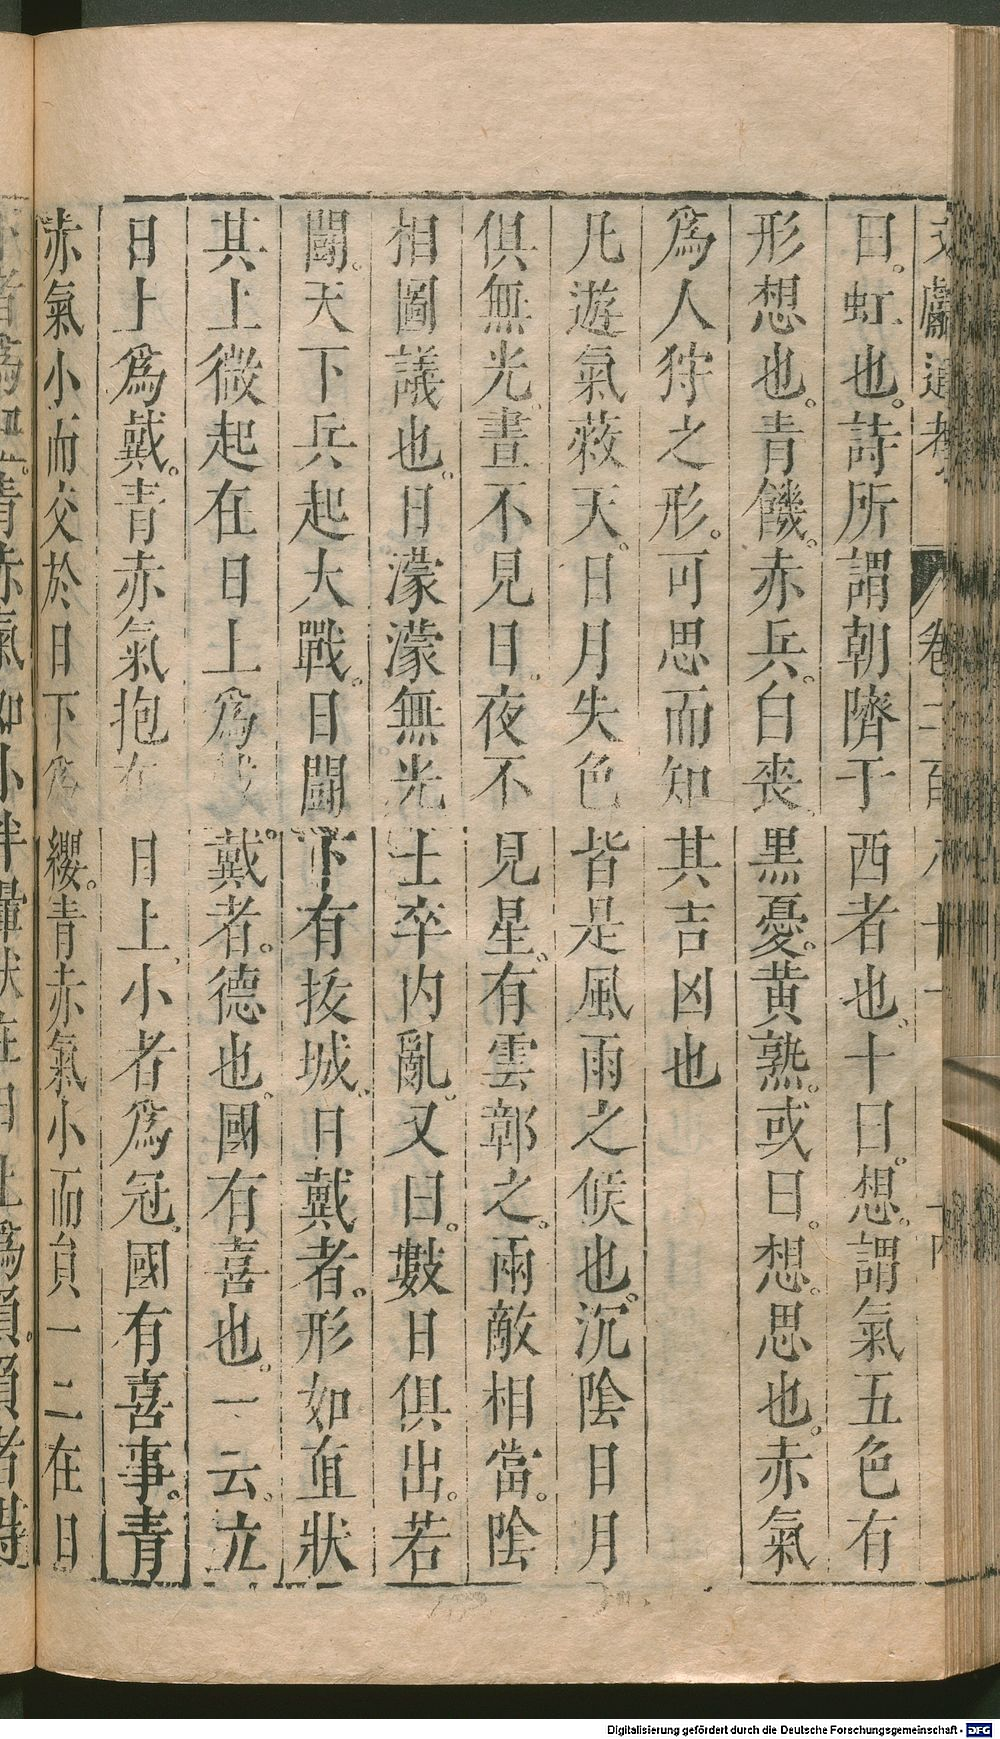 文獻通考 卷二百八十一 十六
曰。虹也。詩所謂朝隮于西者也。十曰。想。謂氣五色有
形想也。青饑。赤兵。白喪黑憂。黃熟。或曰。想。思也。赤氣
爲人狩之形。可思而知其吉凶也
凡遊氣蔽天。日月失色皆是風雨之候也。沉陰日月
俱無光。晝不見日。夜不見星。有雲鄣之。兩敵相當。陰
相圖議也。日濛濛無光士卒內亂。又曰。數日俱出。若
鬭。天下兵起大戰。日鬭下有拔城。日戴者。形如直狀
其上微起在日上爲戴戴者。德也。國有喜也。一云。立
日上爲戴。青赤氣抱在日上。小者爲冠。國有喜事。青
赤氣小而交於日下爲纓。青赤氣小而員一二在日
青赤氣如小半暈狀在日上爲負。負者得
Digitalisierung gefördert durch die Deutsche Forschungsgemeinschaft - DFG